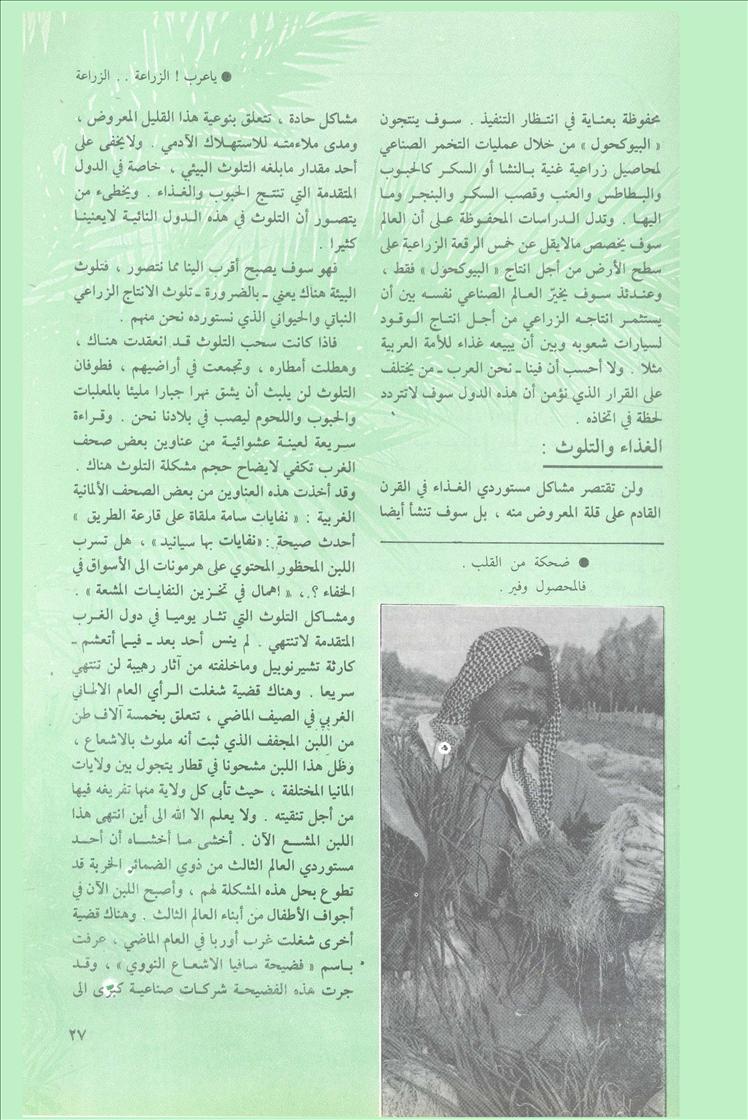 ● ياعرب ! الزراعة . . الزراعة
محفوظة بعناية في انتظار التنفيذ . سوف ينتجون
« البيوكحول » من خلال عمليات التخمر الصناعي
لمحاصيل زراعية غنية بالنشا أو السكر كالحبوب
والبطاطس والعنب وقصب السكر والبنجر وما
اليها . وتدل الدراسات المحفوظة على أن العالم
سوف يخصص مالايقل عن خمس الرقعة الزراعية على
سطح الأرض من أجل انتاج « البيوكحول » فقط ،
وعندئذ سوف يخيّر العالم الصناعي نفسه بين أن
يستثمر انتاجه الزراعي من أجل انتاج الوقود
لسيارات شعوبه وبين أن يبيعه غذاء للأمة العربية
مثلا . ولا أحسب أن فينا ـ نحن العرب ـ من يختلف
على القرار الذي نؤمن أن هذه الدول سوف لاتتردد
لحظة في اتخاذه .
الغذاء والتلوث :
ولن تقتصر مشاكل مستوردي الغذاء في القرن
القادم على قلة المعروض منه ، بل سوف تنشأ أيضا
● ضحكة من القلب .
فالمحصول وفير .
مشاكل حادة ، تتعلق بنوعية هذا القليل المعروض ،
ومدى ملاءمته للاستهلاك الآدمي . ولايخفى على
أحد مقدار مابلغه التلوث البيئي ، خاصة في الدول
المتقدمة التي تنتج الحبوب والغذاء . ويخطىء من
يتصور أن التلوث في هذه الدول النائية لايعنينا
كثيرا .
فهو سوف يصبح أقرب الينا مما نتصور ، فتلوث
البيئة هناك يعني ـ بالضرورة ـ تلوث الانتاج الزراعي
النباتي والحيواني الذي نستورده نحن منهم .
فاذا كانت سحب التلوث قد انعقدت هناك ،
وهطلت أمطاره ، وتجمعت في أراضيهم ، فطوفان
التلوث لن يلبث أن يشق نهرا جبارا مليئا بالمعلبات
والحبوب واللحوم ليصب في بلادنا نحن . وقراءة
سريعة لعينة عشوائية من عناوين بعض صحف
الغرب تكفي لايضاح حجم مشكلة التلوث هناك .
وقد أخذت هذه العناوين من بعض الصحف الألمانية
الغربية : « نفايات سامة ملقاة على قارعة الطريق »
أحدث صيحة : «نفايات بها سيانيد» ، هل تسرب
اللبن المحظور المحتوي على هرمونات الى الأسواق في
الخفاء ؟ ، « اهمال في تخزين النفايات المشعة » .
ومشاكل التلوث التي تثار يوميا في دول الغرب
المتقدمة لاتنتهي . لم ينس أحد بعد ـ فيما أتعشم ـ
كارثة تشيرنوبيل وماخلفته من آثار رهيبة لن تنتهي
سريعا . وهناك قضية شغلت الرأي العام الالماني
الغربي في الصيف الماضي ، تتعلق بخمسة آلاف طن
من اللبن المجفف الذي ثبت أنه ملوث بالاشعاع ،
وظل هذا اللبن مشحونا في قطار يتجول بين ولايات
المانيا المختلفة ، حيث تأبى كل ولاية منها تفريغه فيها
من أجل تنقيته . ولا يعلم الا الله الى أين انتهى هذا
اللبن المشع الآن . أخشى ما أخشاه أن أحد
مستوردي العالم الثالث من ذوي الضمائر الخربة قد
تطوع بحل هذه المشكلة لهم ، وأصبح اللبن الآن في
أجواف الأطفال من أبناء العالم الثالث . وهناك قضية
أخرى شغلت غرب أوربا في العام الماضي ، عرفت
باسم « فضيحة مافيا الاشعاع النووي » ، وقد
جرت هذه الفضيحة شركات صناعية كبرى الى
٢٧